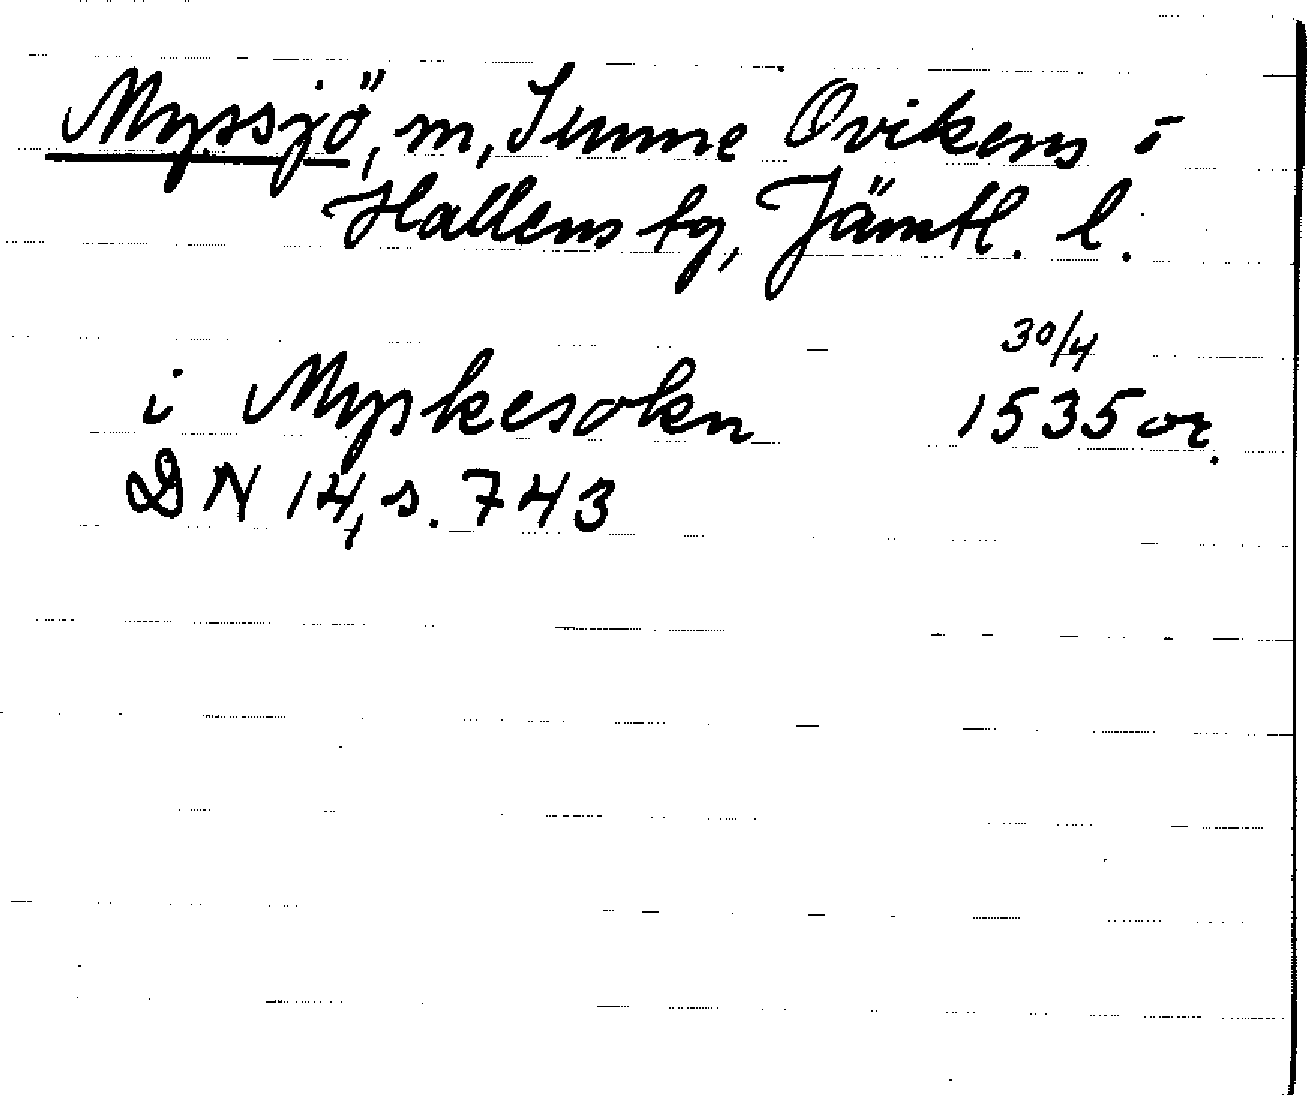 Myssjö, m, Sunne Ovikens o
Hallens tg, Jämtl. l.
30/4
i Myskesokn 1535 or.
DN 14, s. 743